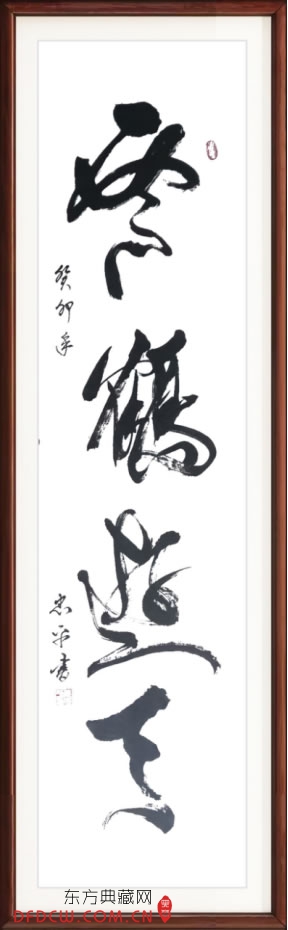 雲鶴遊天
癸卯年
忠平書
东方典藏网
DFDCW.COM.CN